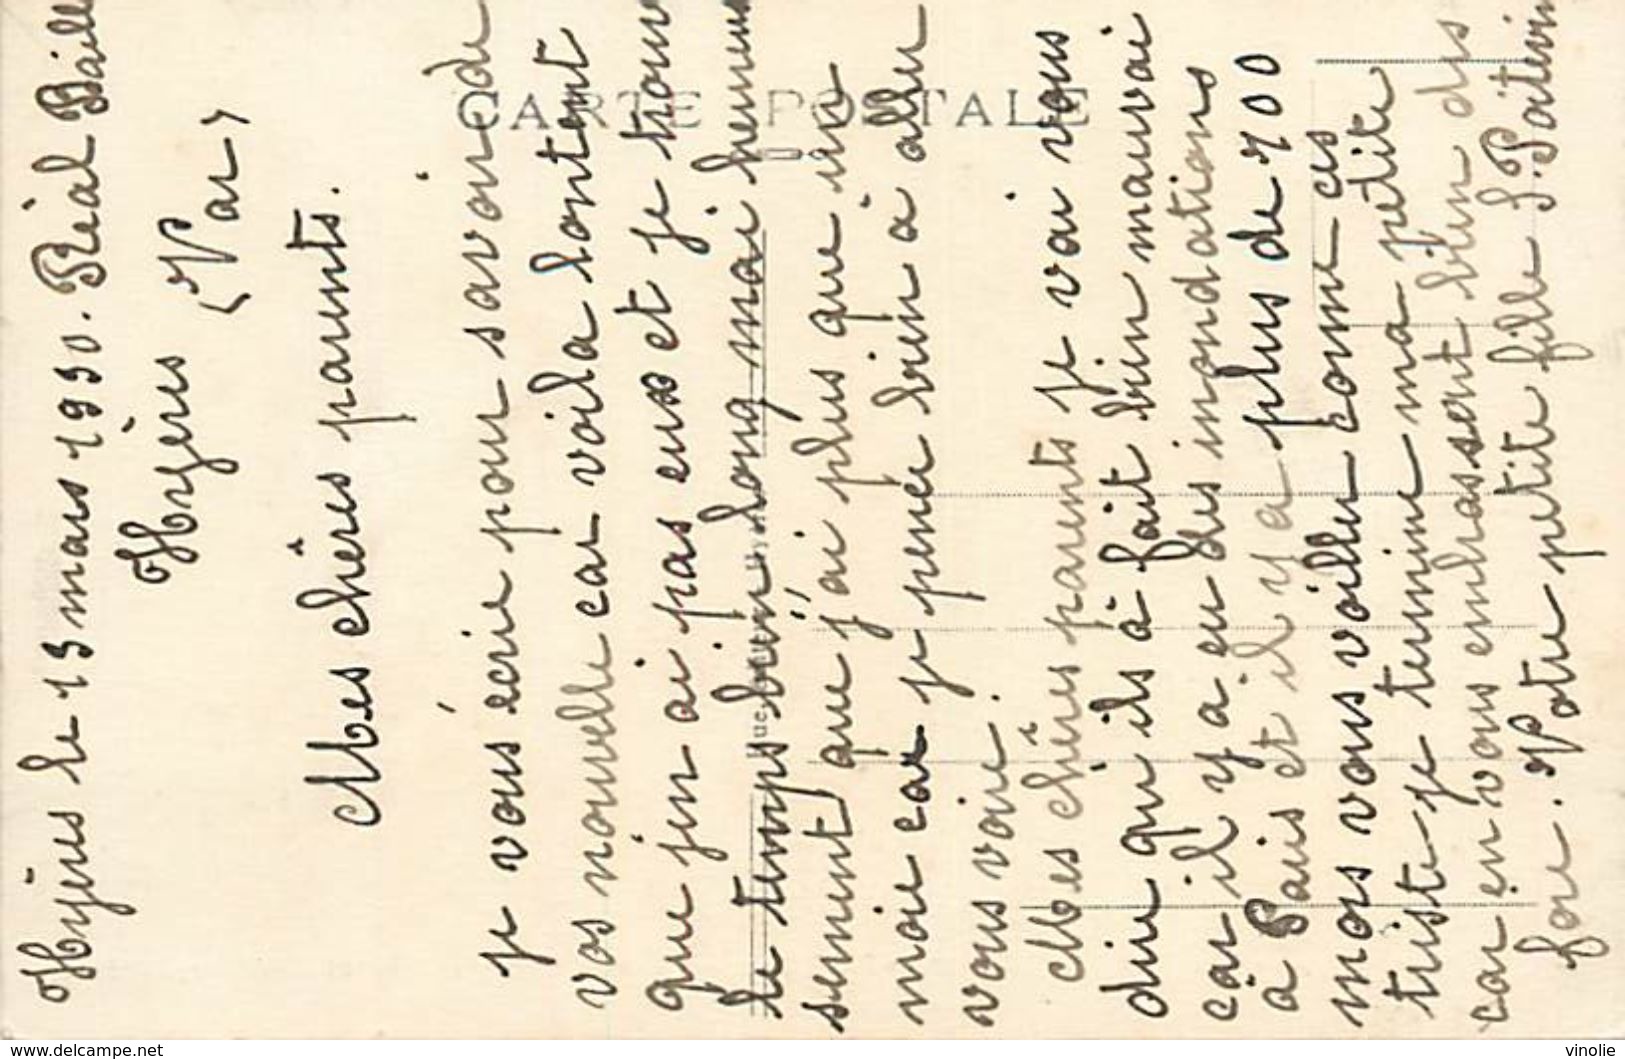 Hyères le 13 mars 1930. Réal Baill
Hyères
(Var)
Mes chères parents.
CARTE POSTALE
je vous écrie pour savoire de
vos nouvelle car voila lontemt
que jen ai pas eux et je trouve
le temps bien long mai heureu
sement que j'ai plus que un
moie car je pense bien à aller
vous voire.
Mes chères parents je vai vous
dire qu ils à fait bien mauvai
car il y a eu des inondations
à Pais et il y a plus de 700
mors vous voillez comme ces
triste je termine ma petite
car en vous embrassent bien des
foie. Votre petite fille S. Poitevin
www.delcampe.net
vinolie